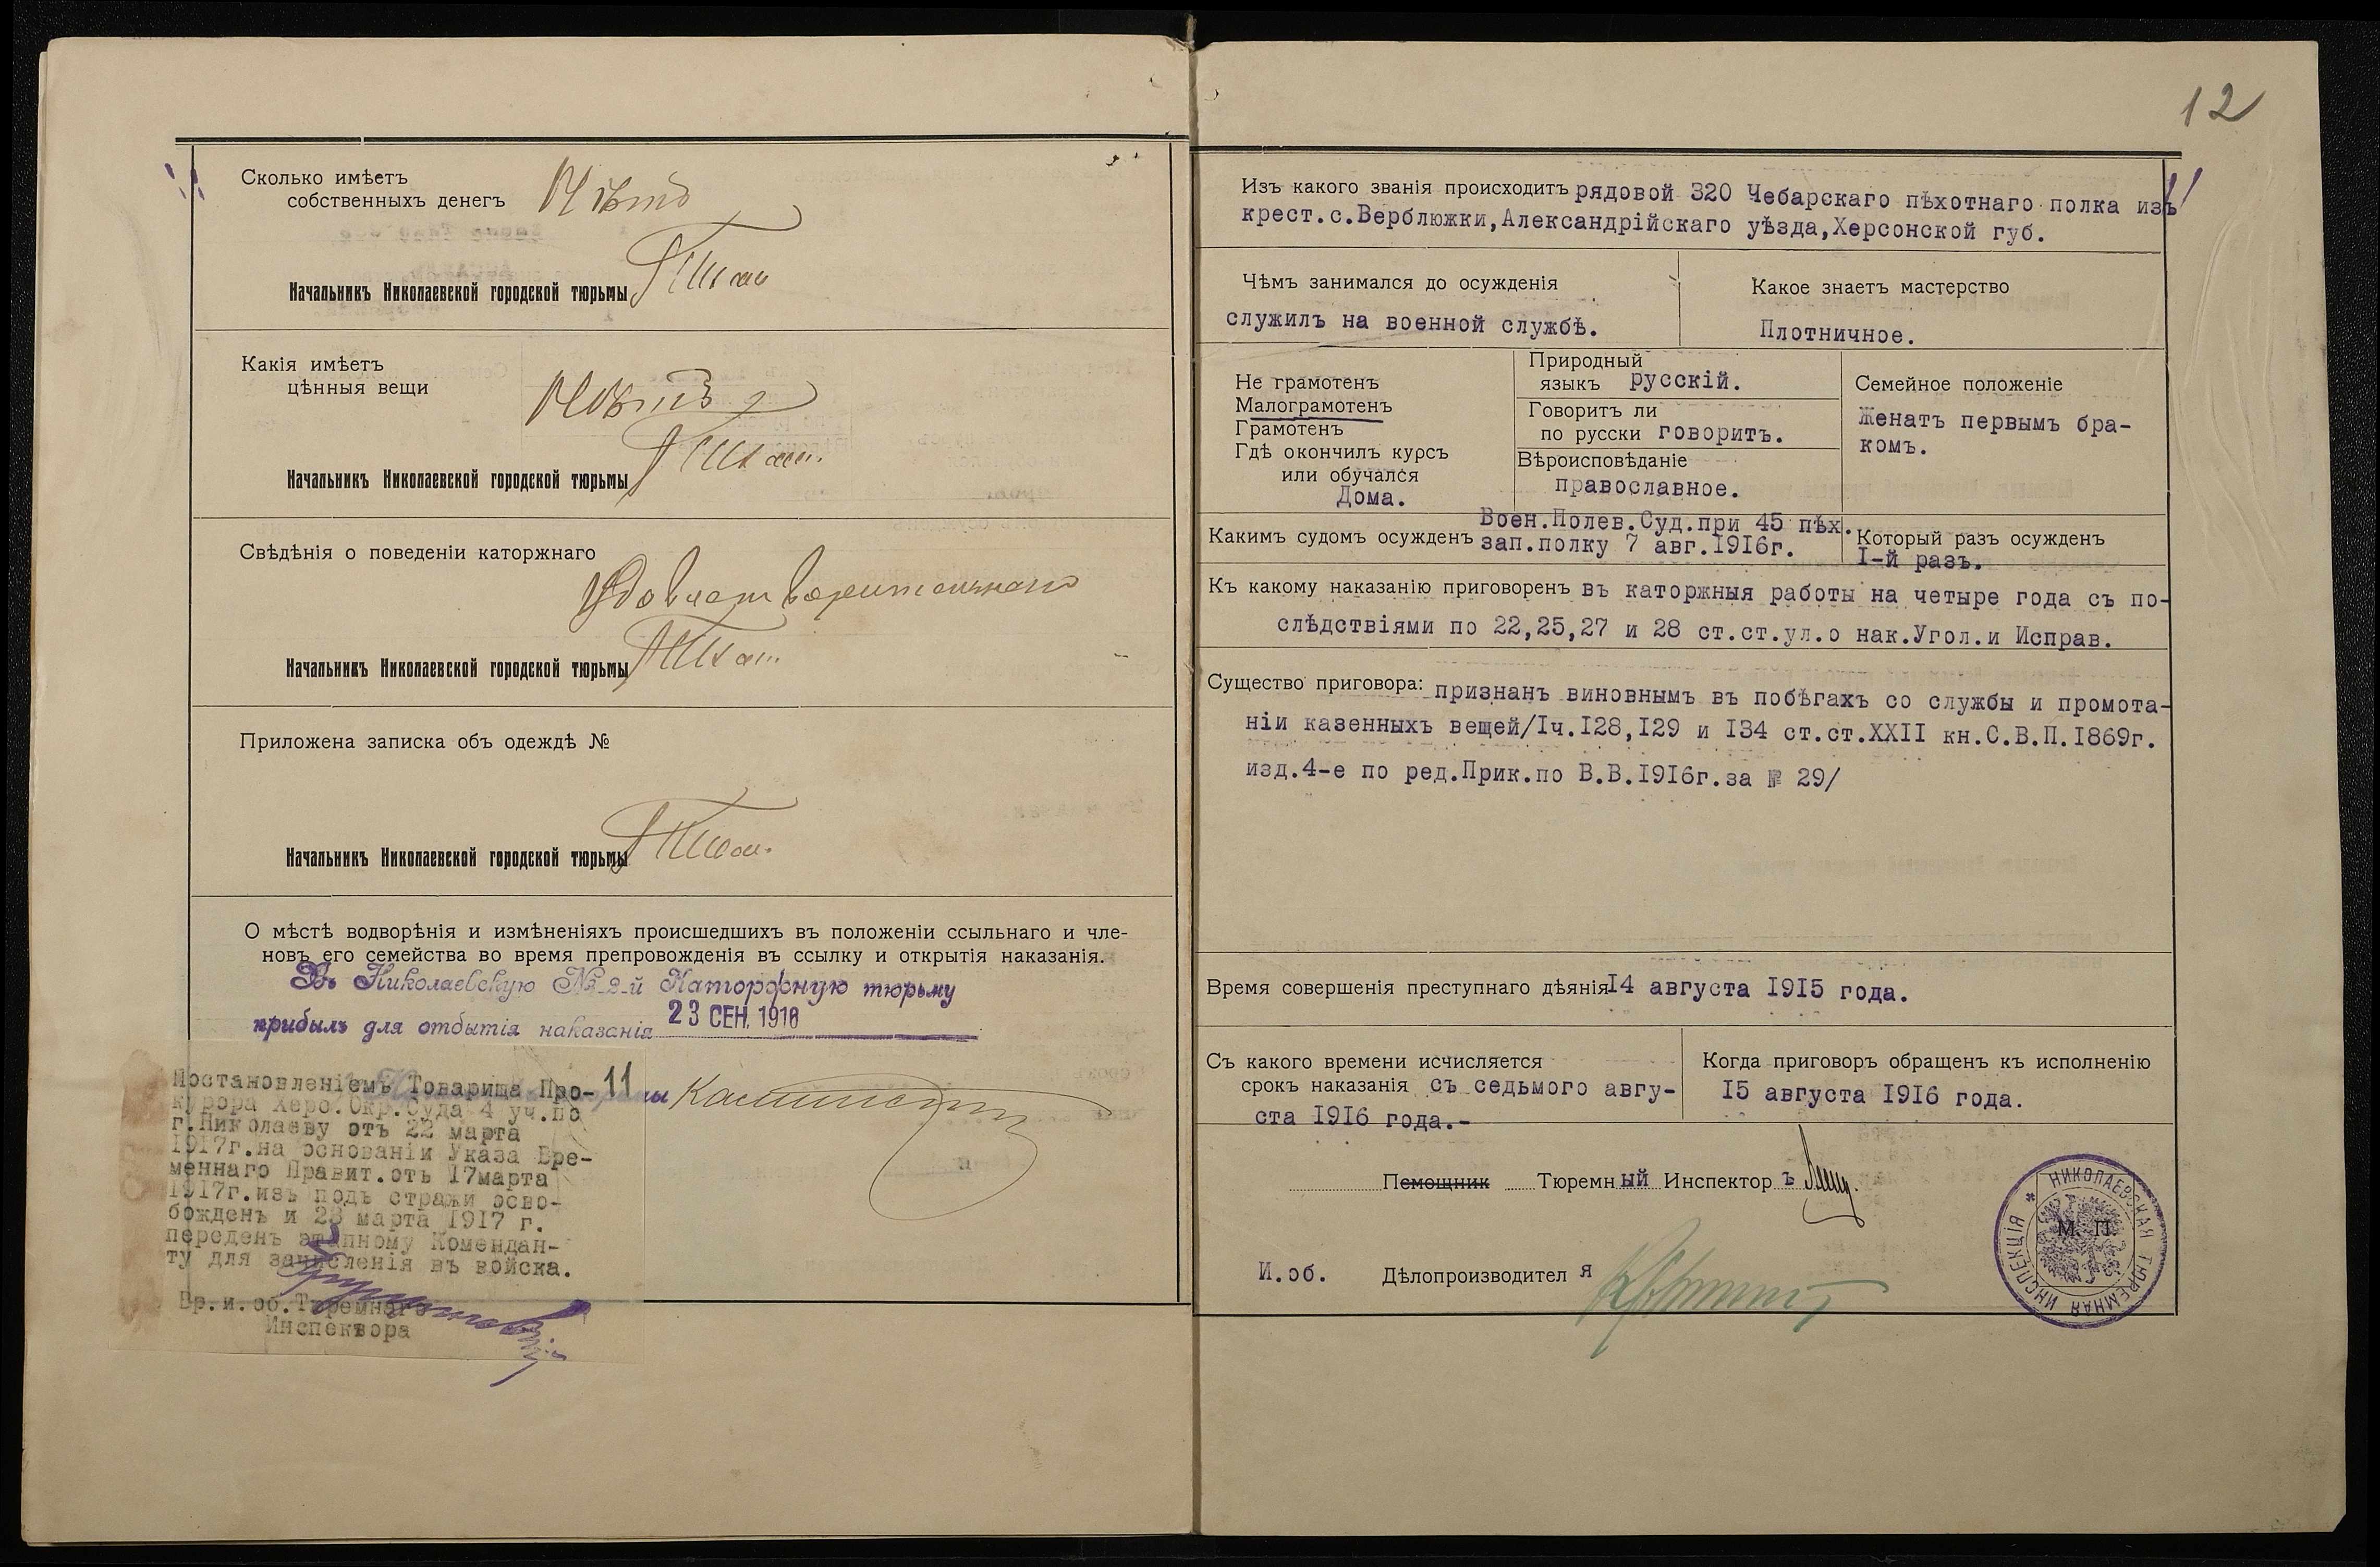 Сколько имѣетъ
собственныхъ денегъ Нѣтъ
Начальникъ Николаевской городской тюрьмы
Какія имѣетъ
цѣнныя вещи Нѣтъ
Начальникъ Николаевской городской тюрьмы
Свѣдѣнія о поведеніи каторжнаго
Удовлетворительнаго
Начальникъ Николаевской городской тюрьмы
Приложена записка объ одеждѣ №
Начальникъ Николаевской городской тюрьмы
О мѣстѣ водворѣнія и измѣненіяхъ происшедшихъ въ положеніи ссыльнаго и чле-
новъ его семейства во время препровожденія въ ссылку и открытія наказанія.
Въ Николаевскую № 2-й Каторжную тюрьму
прибылъ для отбытія наказанія 23 СЕН. 1916
Постановленіемъ Товарища Про- 11
курора Херс.Окр.Суда 4 уч.по
г.Николаеву отъ 22 марта
1917г.на основаніи Указа Вре-
меннаго Правит.отъ 17марта
1917г.изъ подъ стражи осво-
божденъ и 23 марта 1917 г.
переденъ этапному Комендан-
ту для зачисленія въ войска.
Вр.и.об.Тюремнаго
Инспектора
12
Изъ какого званія происходитъ рядовой 320 Чебарскаго пѣхотнаго полка изъ
крест.с.Верблюжки,Александрійскаго уѣзда,Херсонской губ.
Чѣмъ занимался до осужденія
служилъ на военной службѣ.
Какое знаетъ мастерство
Плотничное.
Не грамотенъ
Малограмотенъ
Грамотенъ
Гдѣ окончилъ курсъ
или обучался
Дома.
Природный
языкъ русскій.
Говоритъ ли
по русски говоритъ.
Вѣроисповѣданіе
православное.
Семейное положеніе
Женатъ первымъ бра-
комъ.
Какимъ судомъ осужденъ Воен.Полев.Суд.при 45 пѣх.
зап.полку 7 авг.1916г.
Который разъ осужденъ
I-й разъ.
Къ какому наказанію приговоренъ въ каторжныя работы на четыре года съ по-
слѣдствіями по 22,25,27 и 28 ст.ст.ул.о нак.Угол.и Исправ.
Существо приговора: признанъ виновнымъ въ побѣгахъ со службы и промота-
ніи казенныхъ вещей/Iч.I28,I29 и I34 ст.ст.XXII кн.С.В.П.I869г.
изд.4-е по ред.Прик.по В.В.I916г.за № 29/
Время совершенія преступнаго дѣянія I4 августа I9I5 года.
Съ какого времени исчисляется
срокъ наказанія съ седьмого авгу-
ста I9I6 года.-
Когда приговоръ обращенъ къ исполненію
I5 августа I9I6 года.
Пемощник Тюремный Инспекторъ
И.об. Дѣлопроизводителя
НИКОЛАЕВСКАЯ ТЮРЕМНАЯ ИНСПЕКЦІЯ
М. П.